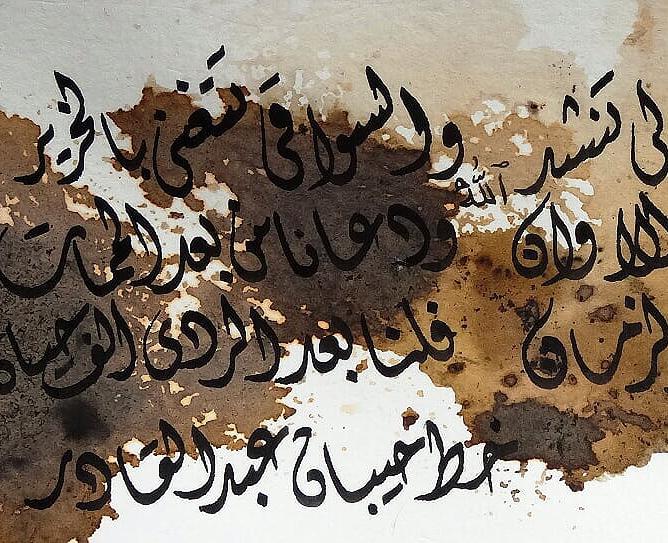 تنشد والسواقي تتغنى بالخرير
الله
الاوان ودعانا من بعد الممات
الزمان فلنا بعد الردى الف حياة
خط حيبان عبدالقادر